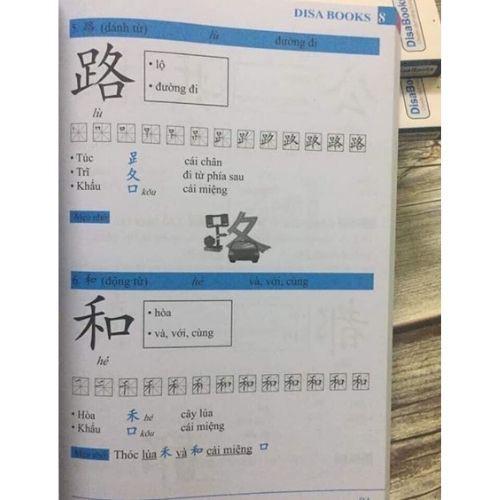 DISA BOOKS 8
5. 路 (danh từ) lù đường đi
路
• lộ
• đường đi
lù
• Túc ⻊ cái chân
• Trĩ 夂 đi từ phía sau
• Khẩu 口 kǒu cái miệng
Mẹo nhớ
6. 和 (động từ) hé và, với, cùng
和
• hòa
• và, với, cùng
hé
• Hòa 禾 hé cây lúa
• Khẩu 口 kǒu cái miệng
Mẹo nhớ Thóc lúa 禾 và 和 cái miệng 口
DisaBooks
DisaBo